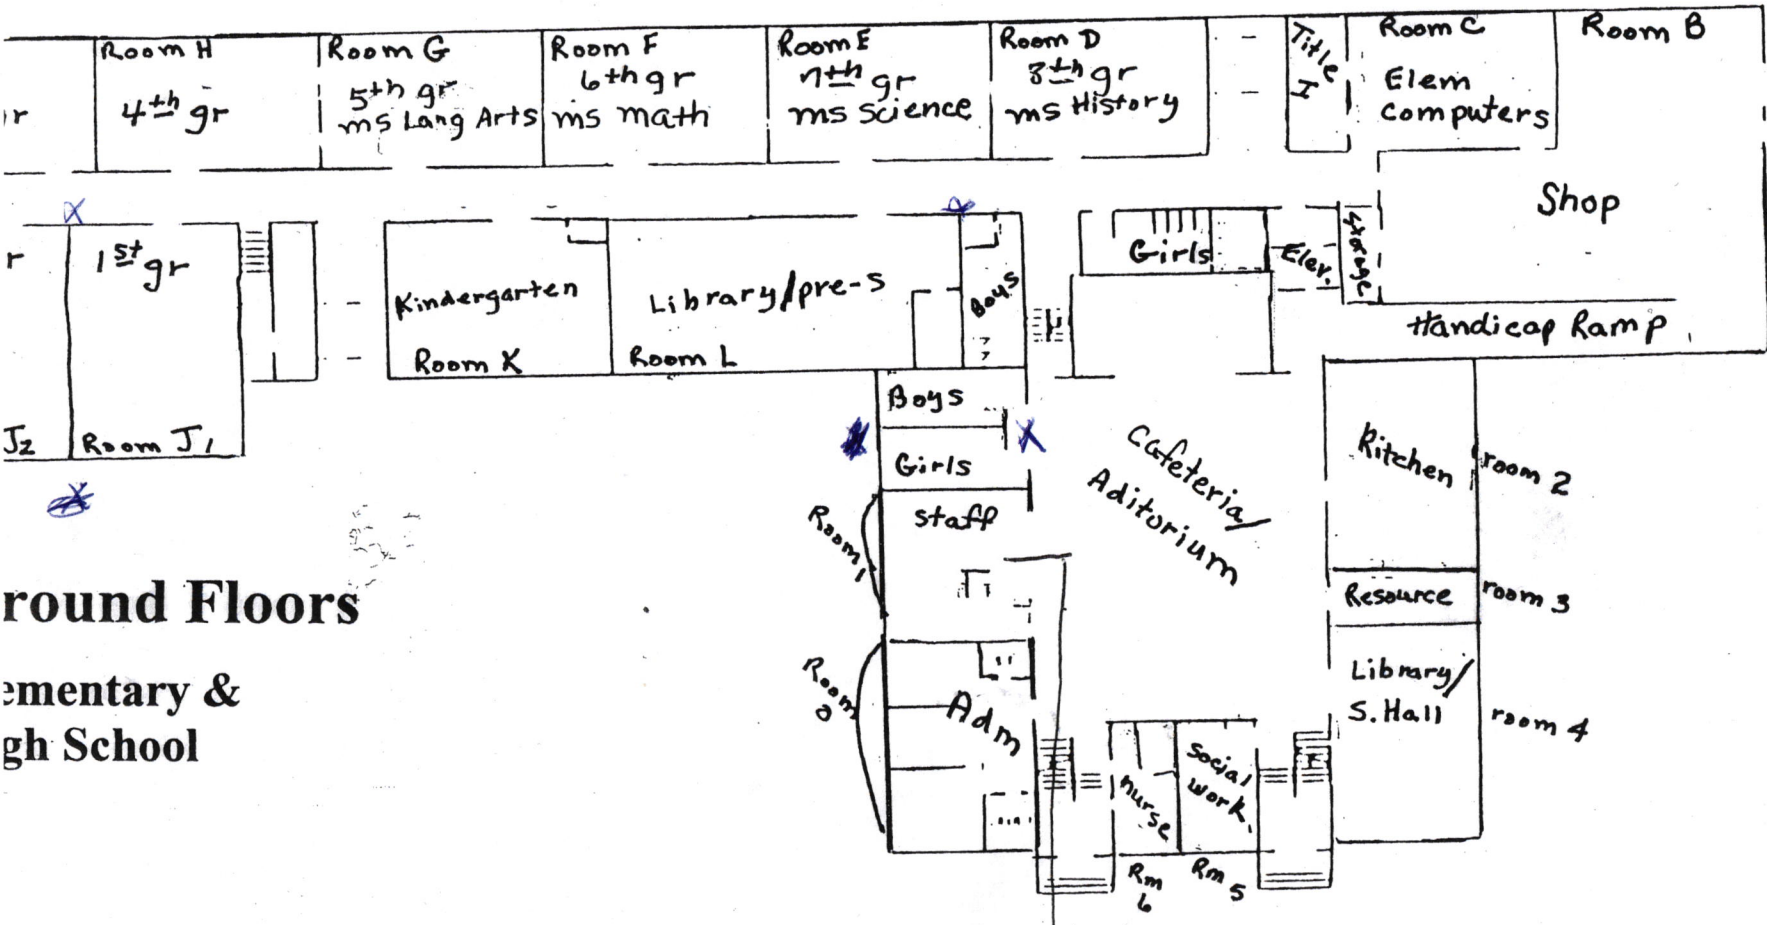 Room H
4th gr
Room G
5th gr
ms Lang Arts
Room F
6th gr
ms math
Room E
7th gr
ms Science
Room D
8th gr
ms History
Title
I
Room C
Elem
Computers
Room B
Shop
r
1st gr
J2
Room J1
Kindergarten
Room K
Library/pre-s
Room L
Boys
Girls
Elev.
Storage
Handicap Ramp
Boys
Girls
Staff
Room 1
Cafeteria/
Aditorium
Kitchen
room 2
Resource
room 3
Library/
S. Hall
room 4
Room
Adm
nurse
Social
work.
Rm
6
Rm 5
round Floors
ementary &
gh School